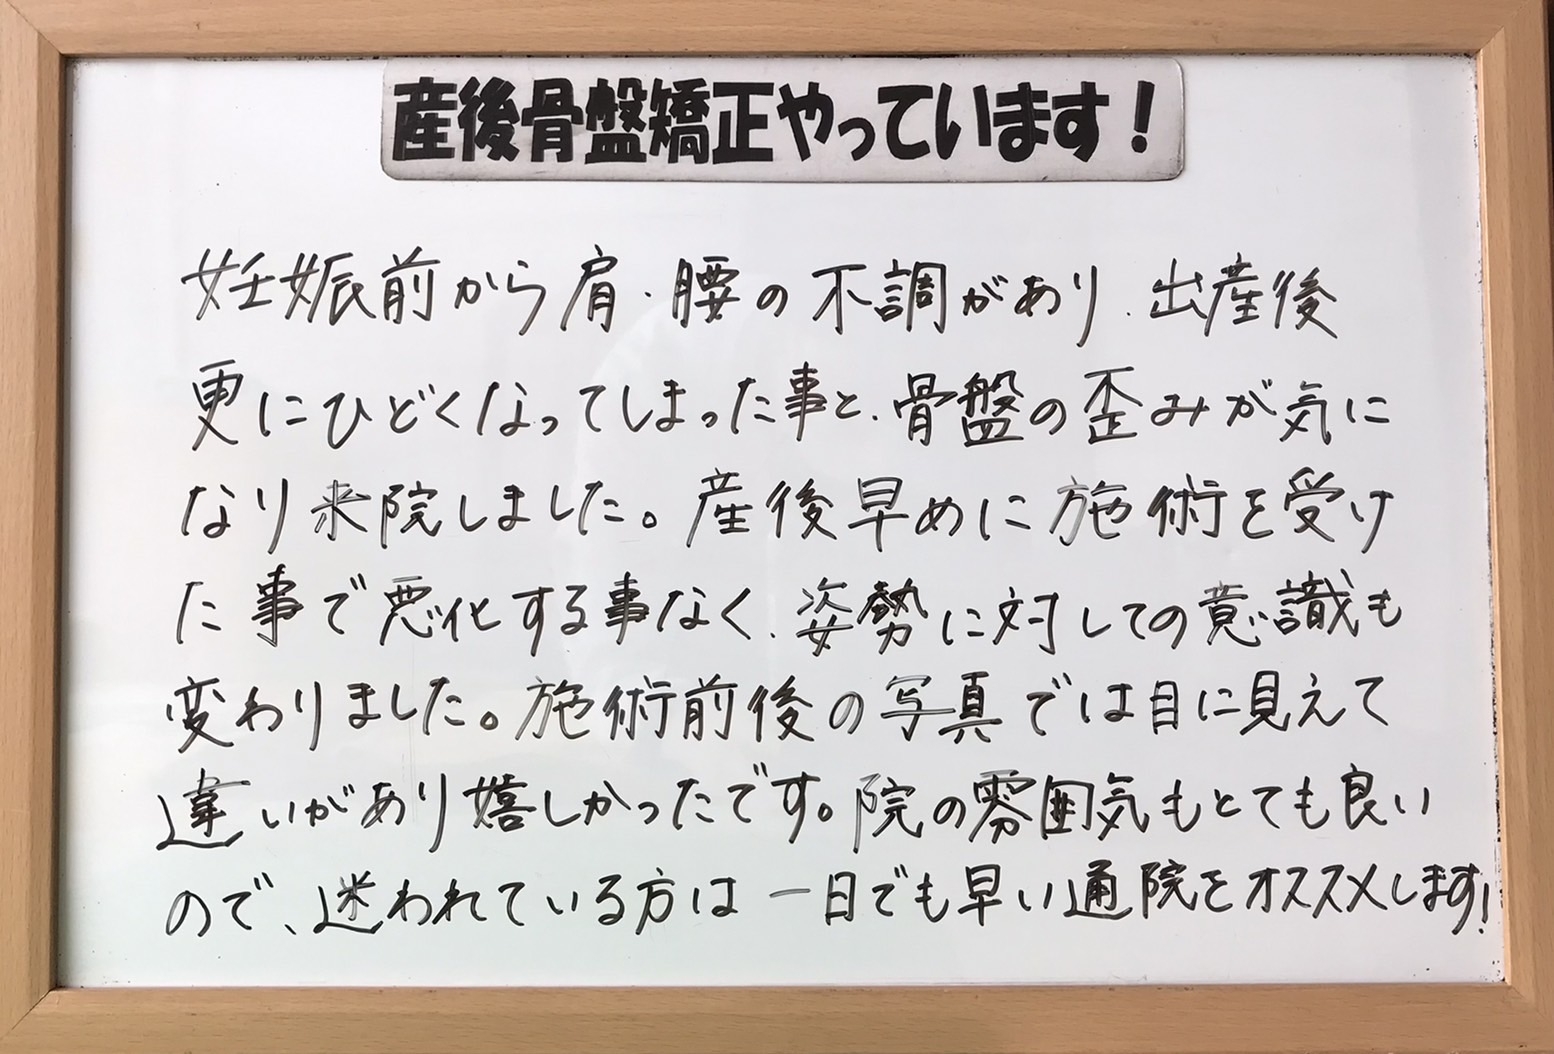 産後骨盤矯正やっています!
妊娠前から肩・腰の不調があり、出産後
更にひどくなってしまった事と、骨盤の歪みが気に
なり来院しました。産後早めに施術を受け
た事で悪化する事なく、姿勢に対しての意識も
変わりました。施術前後の写真では目に見えて
違いがあり嬉しかったです。院の雰囲気もとても良い
ので、迷われている方は一日でも早い通院をオススメします!